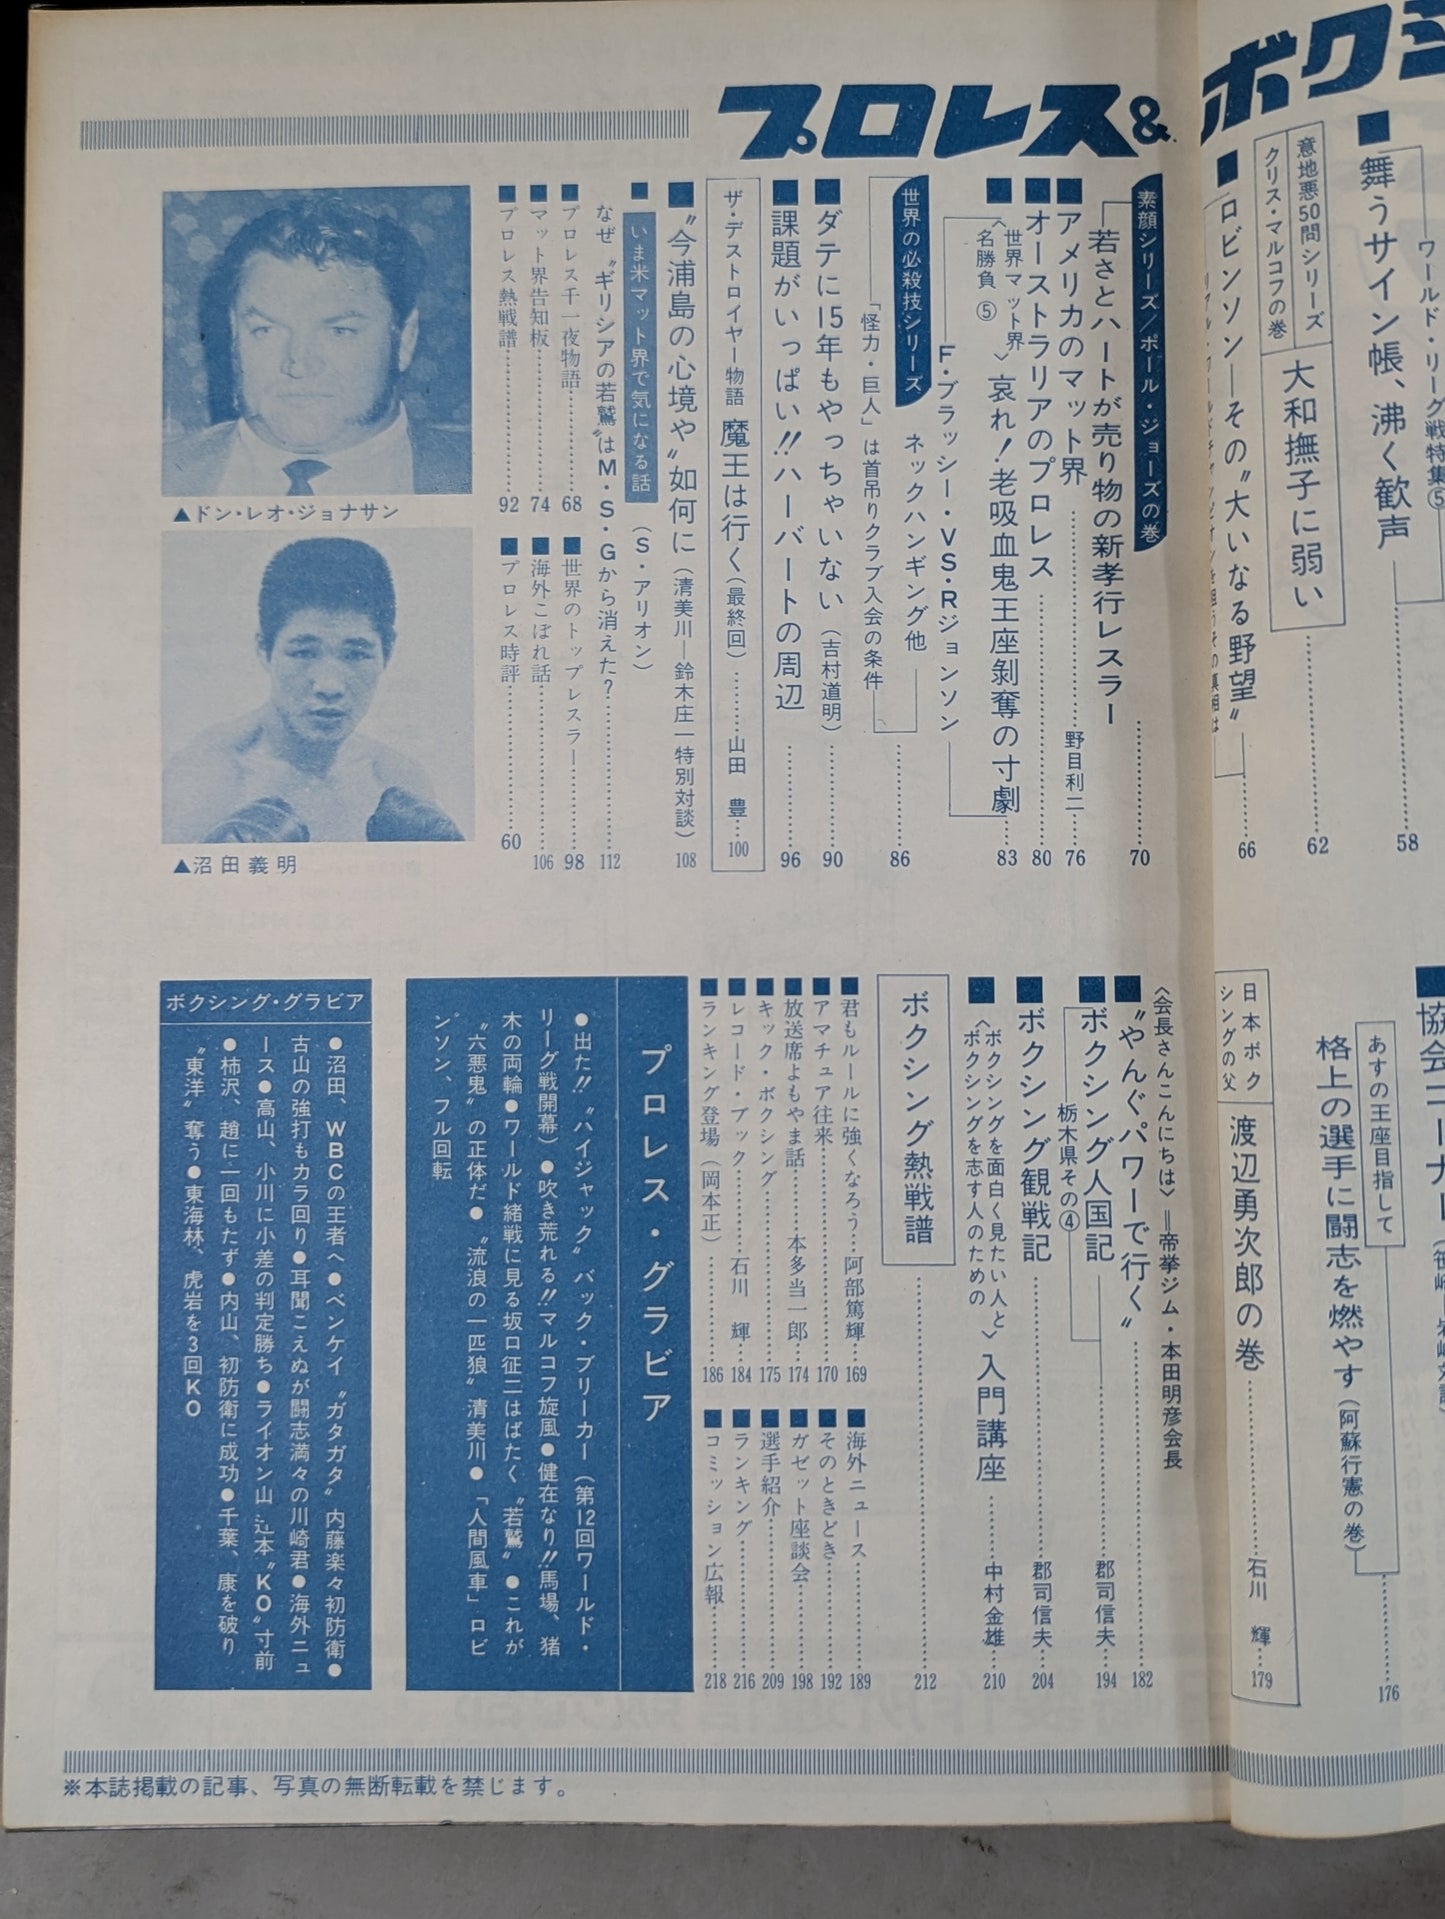 プロレス&
ボクシ
ワールド・リーグ戦特集⑤
舞うサイン帳、沸く歓声 58
意地悪50問シリーズ
クリス・マルコフの巻
大和撫子に弱い 62
ロビンソン―その〝大いなる野望〟 66
素顔シリーズ/ポール・ジョーズの巻
若さとハートが売り物の新孝行レスラー 70
アメリカのマット界 野目利二 76
オーストラリアのプロレス 80
〈世界マット界名勝負⑤〉
哀れ!老吸血鬼王座剝奪の寸劇 83
F・ブラッシー・VS・Rジョンソン
世界の必殺技シリーズ
ネックハンギング他 86
「怪力・巨人」は首吊りクラブ入会の条件
ダテに15年もやっちゃいない(吉村道明) 90
課題がいっぱい!!ハーバートの周辺 96
ザ・デストロイヤー物語 魔王は行く(最終回) 山田 豊 100
〝今浦島の心境や〟如何に(清美川―鈴木庄一特別対談) 108
いま米マット界で気になる話(S・アリオン)
なぜ〝ギリシアの若鷲〟はM・S・Gから消えた? 112
プロレス千一夜物語 68
世界のトップレスラー 98
マット界告知板 74
海外こぼれ話 106
プロレス熱戦譜 92
プロレス時評 60
▲ドン・レオ・ジョナサン
▲沼田義明
あすの王座目指して
格上の選手に闘志を燃やす(阿蘇行憲の巻) 176
日本ボクシングの父
渡辺勇次郎の巻 石川 輝 179
〈会長さんこんにちは〉=帝拳ジム・本田明彦会長
〝やんぐパワーで行く〟 182
ボクシング人国記 郡司信夫 194
栃木県その④
ボクシング観戦記 郡司信夫 204
〈ボクシングを面白く見たい人と
ボクシングを志す人のための〉
入門講座 中村金雄 210
ボクシング熱戦譜 212
君もルールに強くなろう 阿部篤輝 169
海外ニュース 189
アマチュア往来 170
そのときどき 192
放送席よもやま話 本多当一郎 174
ガゼット座談会 198
キック・ボクシング 175
選手紹介 209
レコード・ブック 石川 輝 184
ランキング 216
ランキング登場(岡本正) 186
コミッション広報 218
プロレス・グラビア
●出た!!〝ハイジャック〟バック・ブリーカー(第12回ワールド・
リーグ戦開幕)●吹き荒れる!!マルコフ旋風●健在なり!!馬場、猪
木の両輪●ワールド緒戦に見る坂口征二はばたく〝若鷲〟●これが
〝六悪鬼〟の正体だ●〝流浪の一匹狼〟清美川●「人間風車」ロビ
ンソン、フル回転
ボクシング・グラビア
●沼田、WBCの王者へ●ベンケイ〝ガタガタ〟内藤楽々初防衛●
古山の強打もカラ回り●耳聞こえぬが闘志満々の川崎君●海外ニュ
ース●高山、小川に小差の判定勝ち●ライオン山辻本〝KO〟寸前
●柿沢、趙に一回もたず●内山、初防衛に成功●千葉、康を破り
〝東洋〟奪う●東海林、虎岩を3回KO
※本誌掲載の記事、写真の無断転載を禁じます。